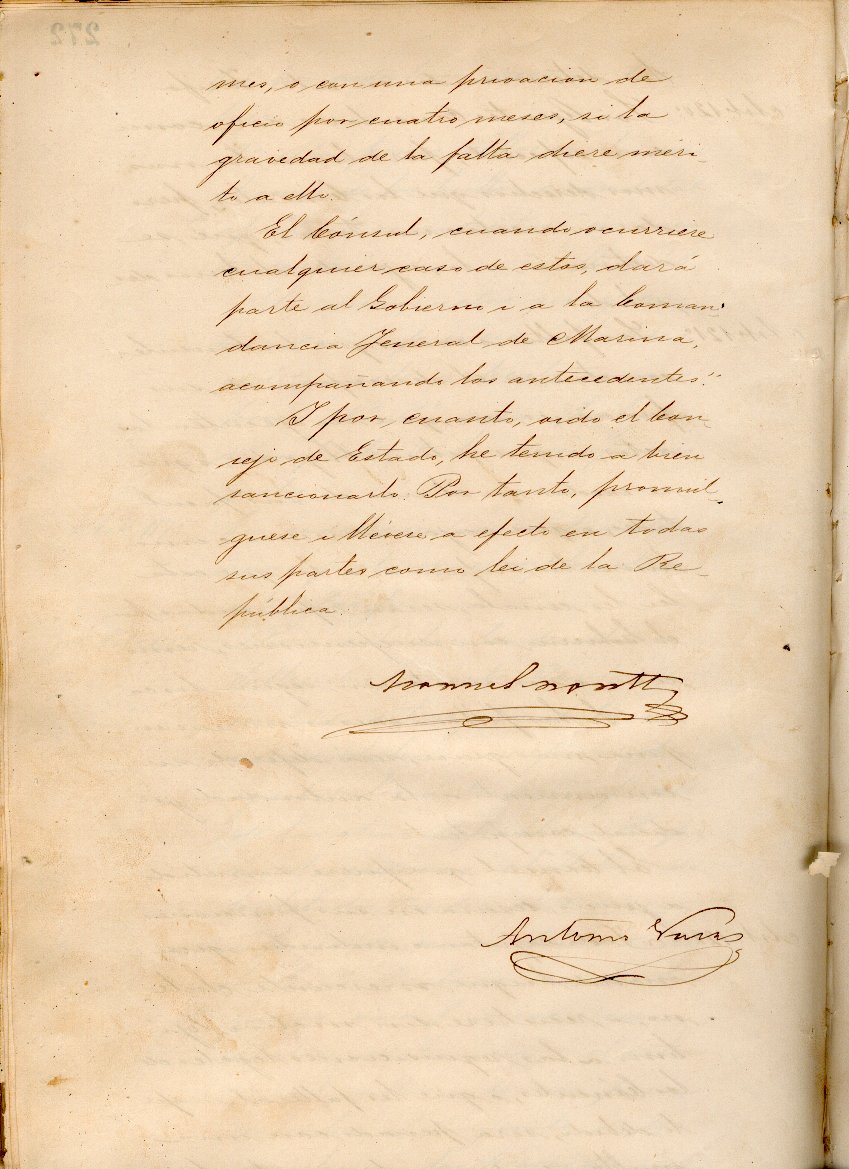 mes, o con una privacion de
oficio por cuatro meses, si la
gravedad de la falta diere méri-
to a ello.
El Cónsul, cuando ocurriere
cualquier caso de estos, dará
parte al Gobierno i a la Coman-
dancia Jeneral de Marina,
acompañando los antecedentes."
I por cuanto, oido el Con-
sejo de Estado, he tenido a bien
sancionarlo. Por tanto, promúl-
guese i llévese a efecto en todas
sus partes como lei de la Re-
pública.
Manuel Montt
Antonio Varas
272